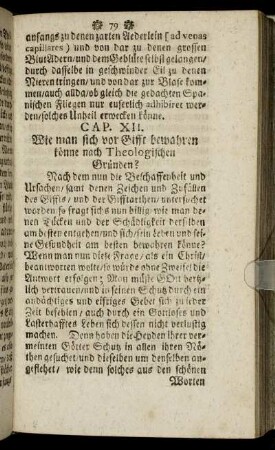 79
anfangs zu denen zarten Aederlein (ad venas
capillares) und von dar zu denen grossen
BlutAdern/ und dem Geblüte selbst gelangen/
durch dasselbe in geschwinder Eil zu denen
Nieren tringen/ und von dar zur Blase kom-
men/ auch allda/ ob gleich die gedachten Spa-
nischen Fliegen nur euserlich adhibiret wer-
den/ solches Unheil erwecken könne.
CAP. XII.
Wie man sich vor Gifft bewahren
könne nach Theologischen
Gründen?
Nach dem nun die Beschaffenheit und
Ursachen/ samt denen Zeichen und Zufällen
des Giffts/ und der Gifftarthen/ untersuchet
worden so fragt sichs nun billig/ wie man de-
ren Tücken und der Schädligkeit derselben
am besten entgehen/ und sich/ sein Leben und sei-
ne Gesundheit am besten bewahren könne?
Wenn man nun diese Frage/ als ein Christ/
beantworten wolte/ so würde ohne Zweifel die
Antwort erfolgen; Man müste GOtt hertz-
lich vertrauen/ und in seinen Schutz durch ein
andächtiges und eifriges Gebet sich zu jeder
Zeit befehlen/ auch durch ein Gottloses und
Lasterhafftes Leben sich dessen nicht verlustig
machen. Denn haben die Heyden ihrer ver-
meinten Götter Schutz in allen ihren Nö-
then gesuchet/ und dieselben um denselben an-
geflehet/ wie denn solches aus den schönen
Worten